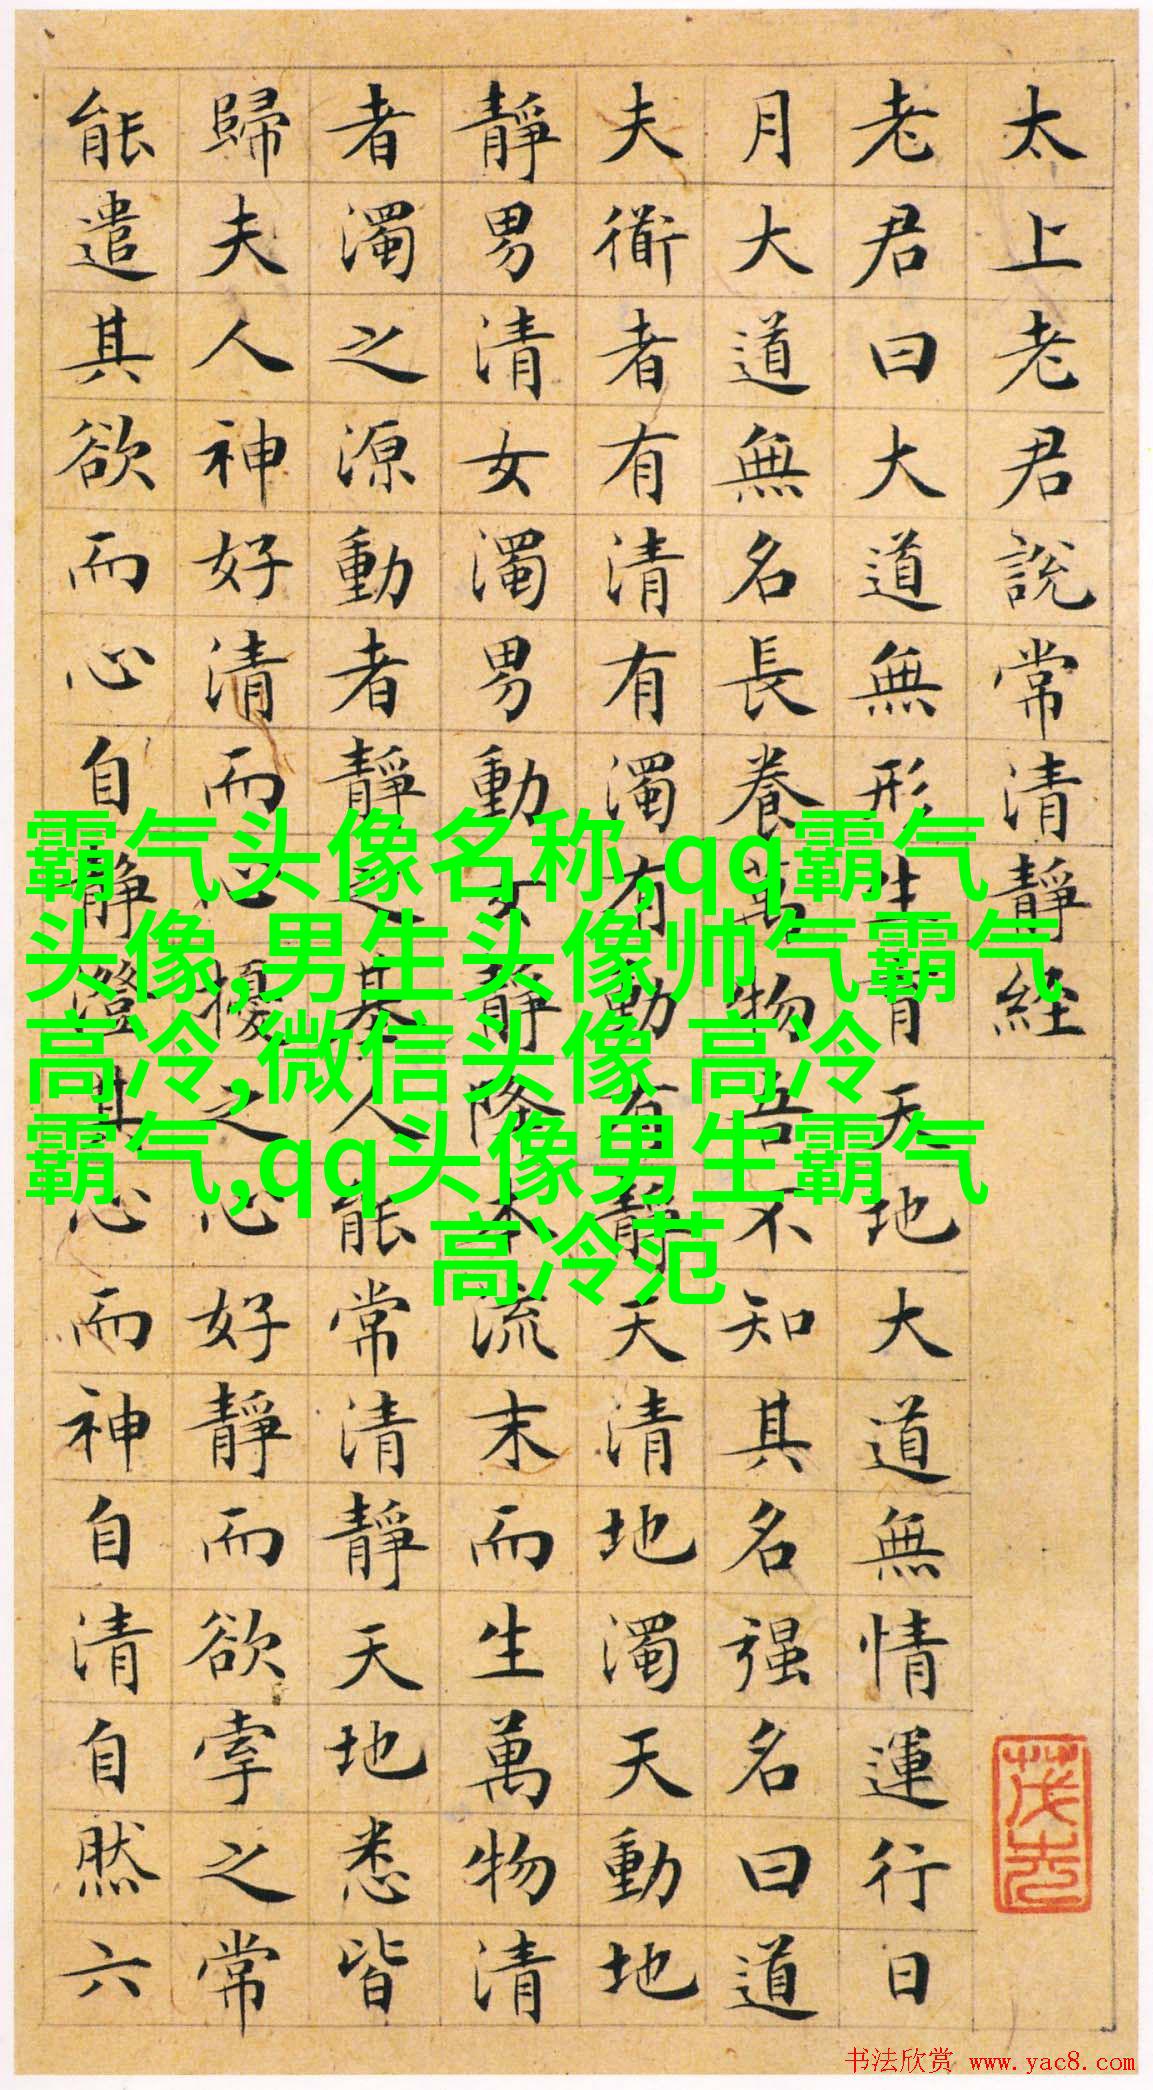 太上老君說常清靜経
老君曰大道無形生育天地大道無情運行日
月大道無名長養萬物吾不知其名强名曰道
夫衜者有清有濁有動有靜天清地濁天動地
靜男清女濁男動女靜降本流末而生萬物清
者濁之源動者靜之基人能常清靜天地悉皆
歸夫人神好清而心擾之心好靜而欲牽之常
能遣其欲而心自靜澄其心而神自清自然六
霸气头像名称,qq霸气
头像,男生头像帅气霸气
高冷,微信头像 高冷
霸气,qq头像男生霸气
高冷范
书法欣赏 www.yac8.com